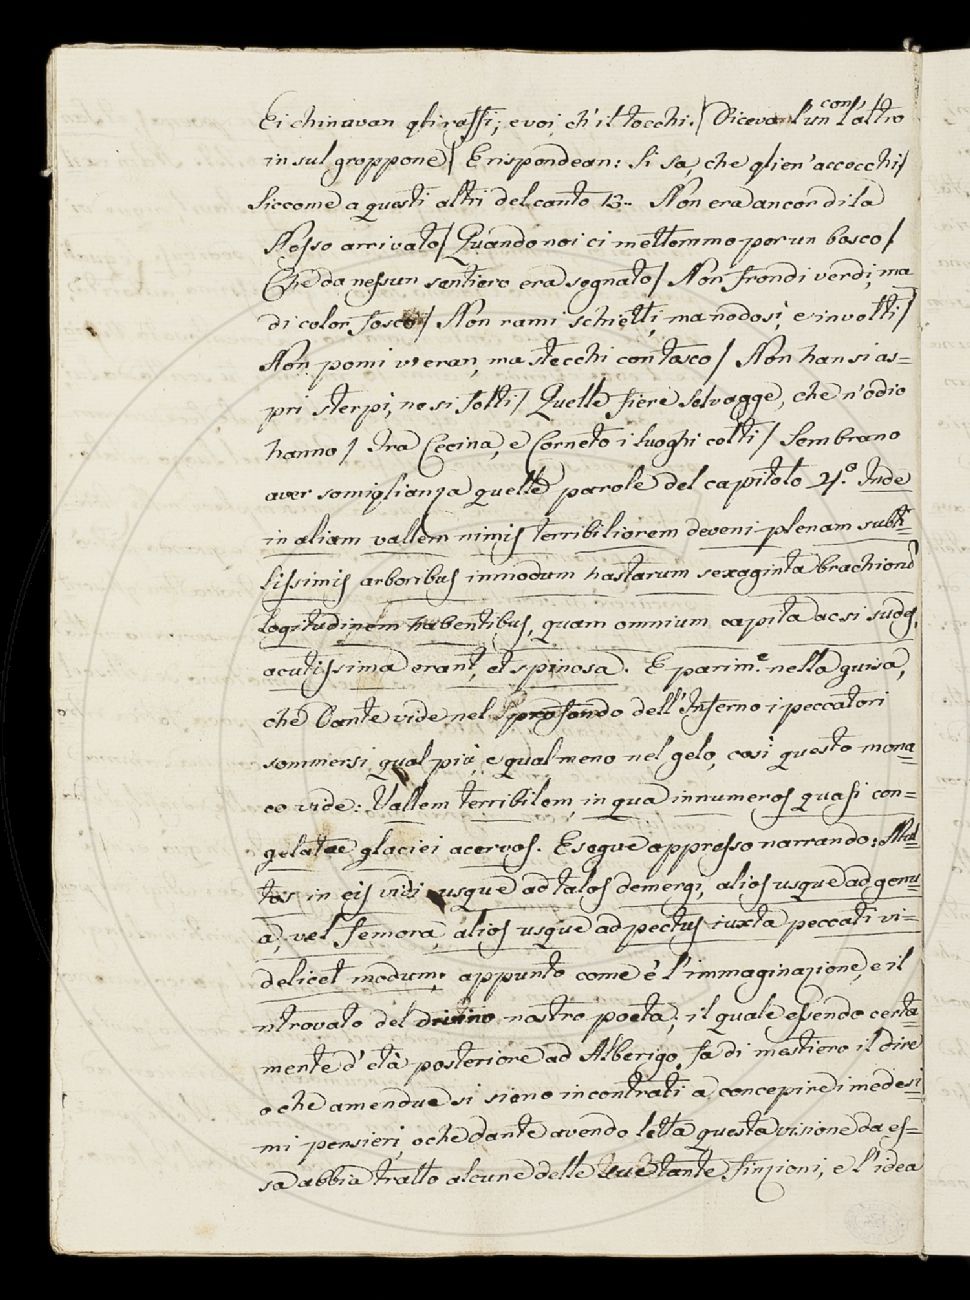 con
Ei chinavan gli raffi; e voi, ch'il tocchi. / Dicevan l'un l'altro
in sul groppone / E rispondean: Si fa, che glien'accocchi /
Siccome a questi altri del canto 13.. Non era ancor di la
Nesso arrivato / Quando noi ci mettemmo per un bosco /
Che da nessun sentiero era segnato / Non frondi verdi, ma
di color fosco / Non rami schietti, ma nodosi, e involti /
Non pomi v'eran, ma stecchi con tosco / Non han si as=
pri sterpi, ne si folti / Quelle fiere selvagge, che n'odio
hanno / Tra Cecina, e Corneto i luoghi colti / Sembrano
aver somiglianza quelle parole del capitolo 4.º Inde
in aliam vallem nimis terribiliorem deveni plenam subti=
lissimis arboribus inmodum hastarum sexaginta brachionũ
logitudinem habentibus, quam omnium capita ac si sudes,
acutissima erant, et spinosa. E parim.e nella guisa,
che Dante vide nel profondo dell'Inferno i peccatori
sommersi qual più, e qual meno nel gelo, così questo mona=
co vide: Vallem terribilem, in qua innumeros quasi con=
gelatae glaciei acervos. E segue appresso narrando: Mul=
tos in eis vidi usque ad talos demergi, alios usque ad genu=
a, vel femora, alios usque ad pectus iuxta peccati vi=
delicet modum; appunto come è l'immaginazione, e il
ntrovato del divino nostro poeta; il quale essendo certa=
mente d'età posteriore ad Alberigo, fa di mestiero il dire
o che amendue si sieno incontrati a concepire i medesi=
mi pensieri, o che dante avendo letta questa visione da es=
sa abbia tratto alcune delle sue tante finzioni, e l'idea